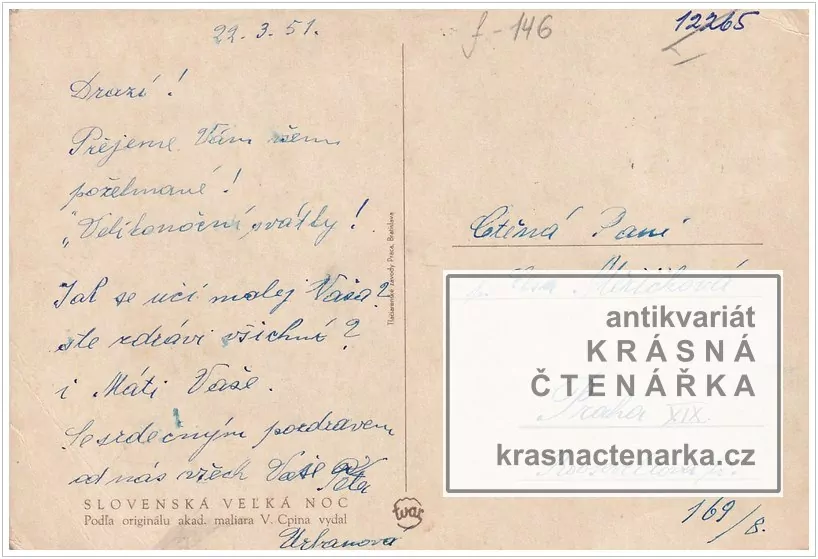 22.3.51.
f-146
12265
Drazí!
Přejeme Vám všem
požehnané!
"Velikonoční svátky!
Jak se učí malej Vaša?
ste zdrávi všichni?
i Máti Vaše.
Se srdečným pozdravem
od nás všech Vaše
Urbanova
SLOVENSKÁ VEĽKÁ NOC
Podľa originálu akad. maliara V. Cpina vydal
tvar
Tlačiarenské závody Praca, Bratislava
Ctěná Paní
antikvariát
KRÁSNÁ
ČTENÁŘKA
Praha XIX.
krasnactenarka.cz
169/8.